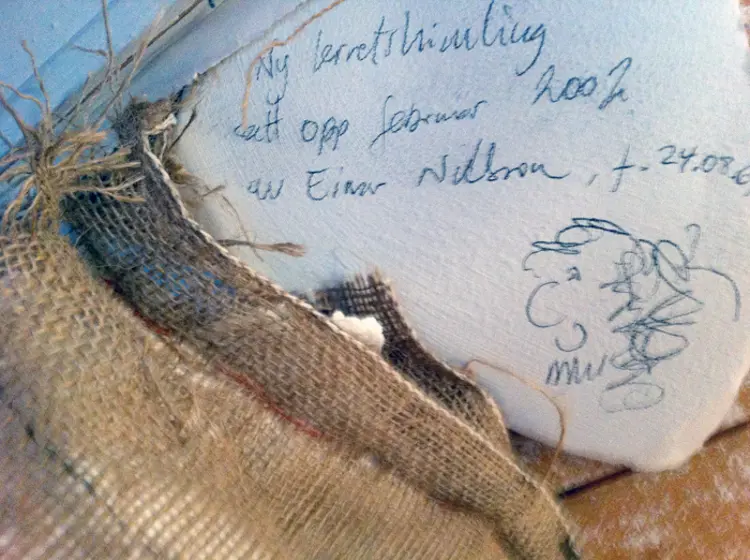 Ny lerretshimling
satt opp februar 2002
av Einar Nilsson, f. 24.08.6